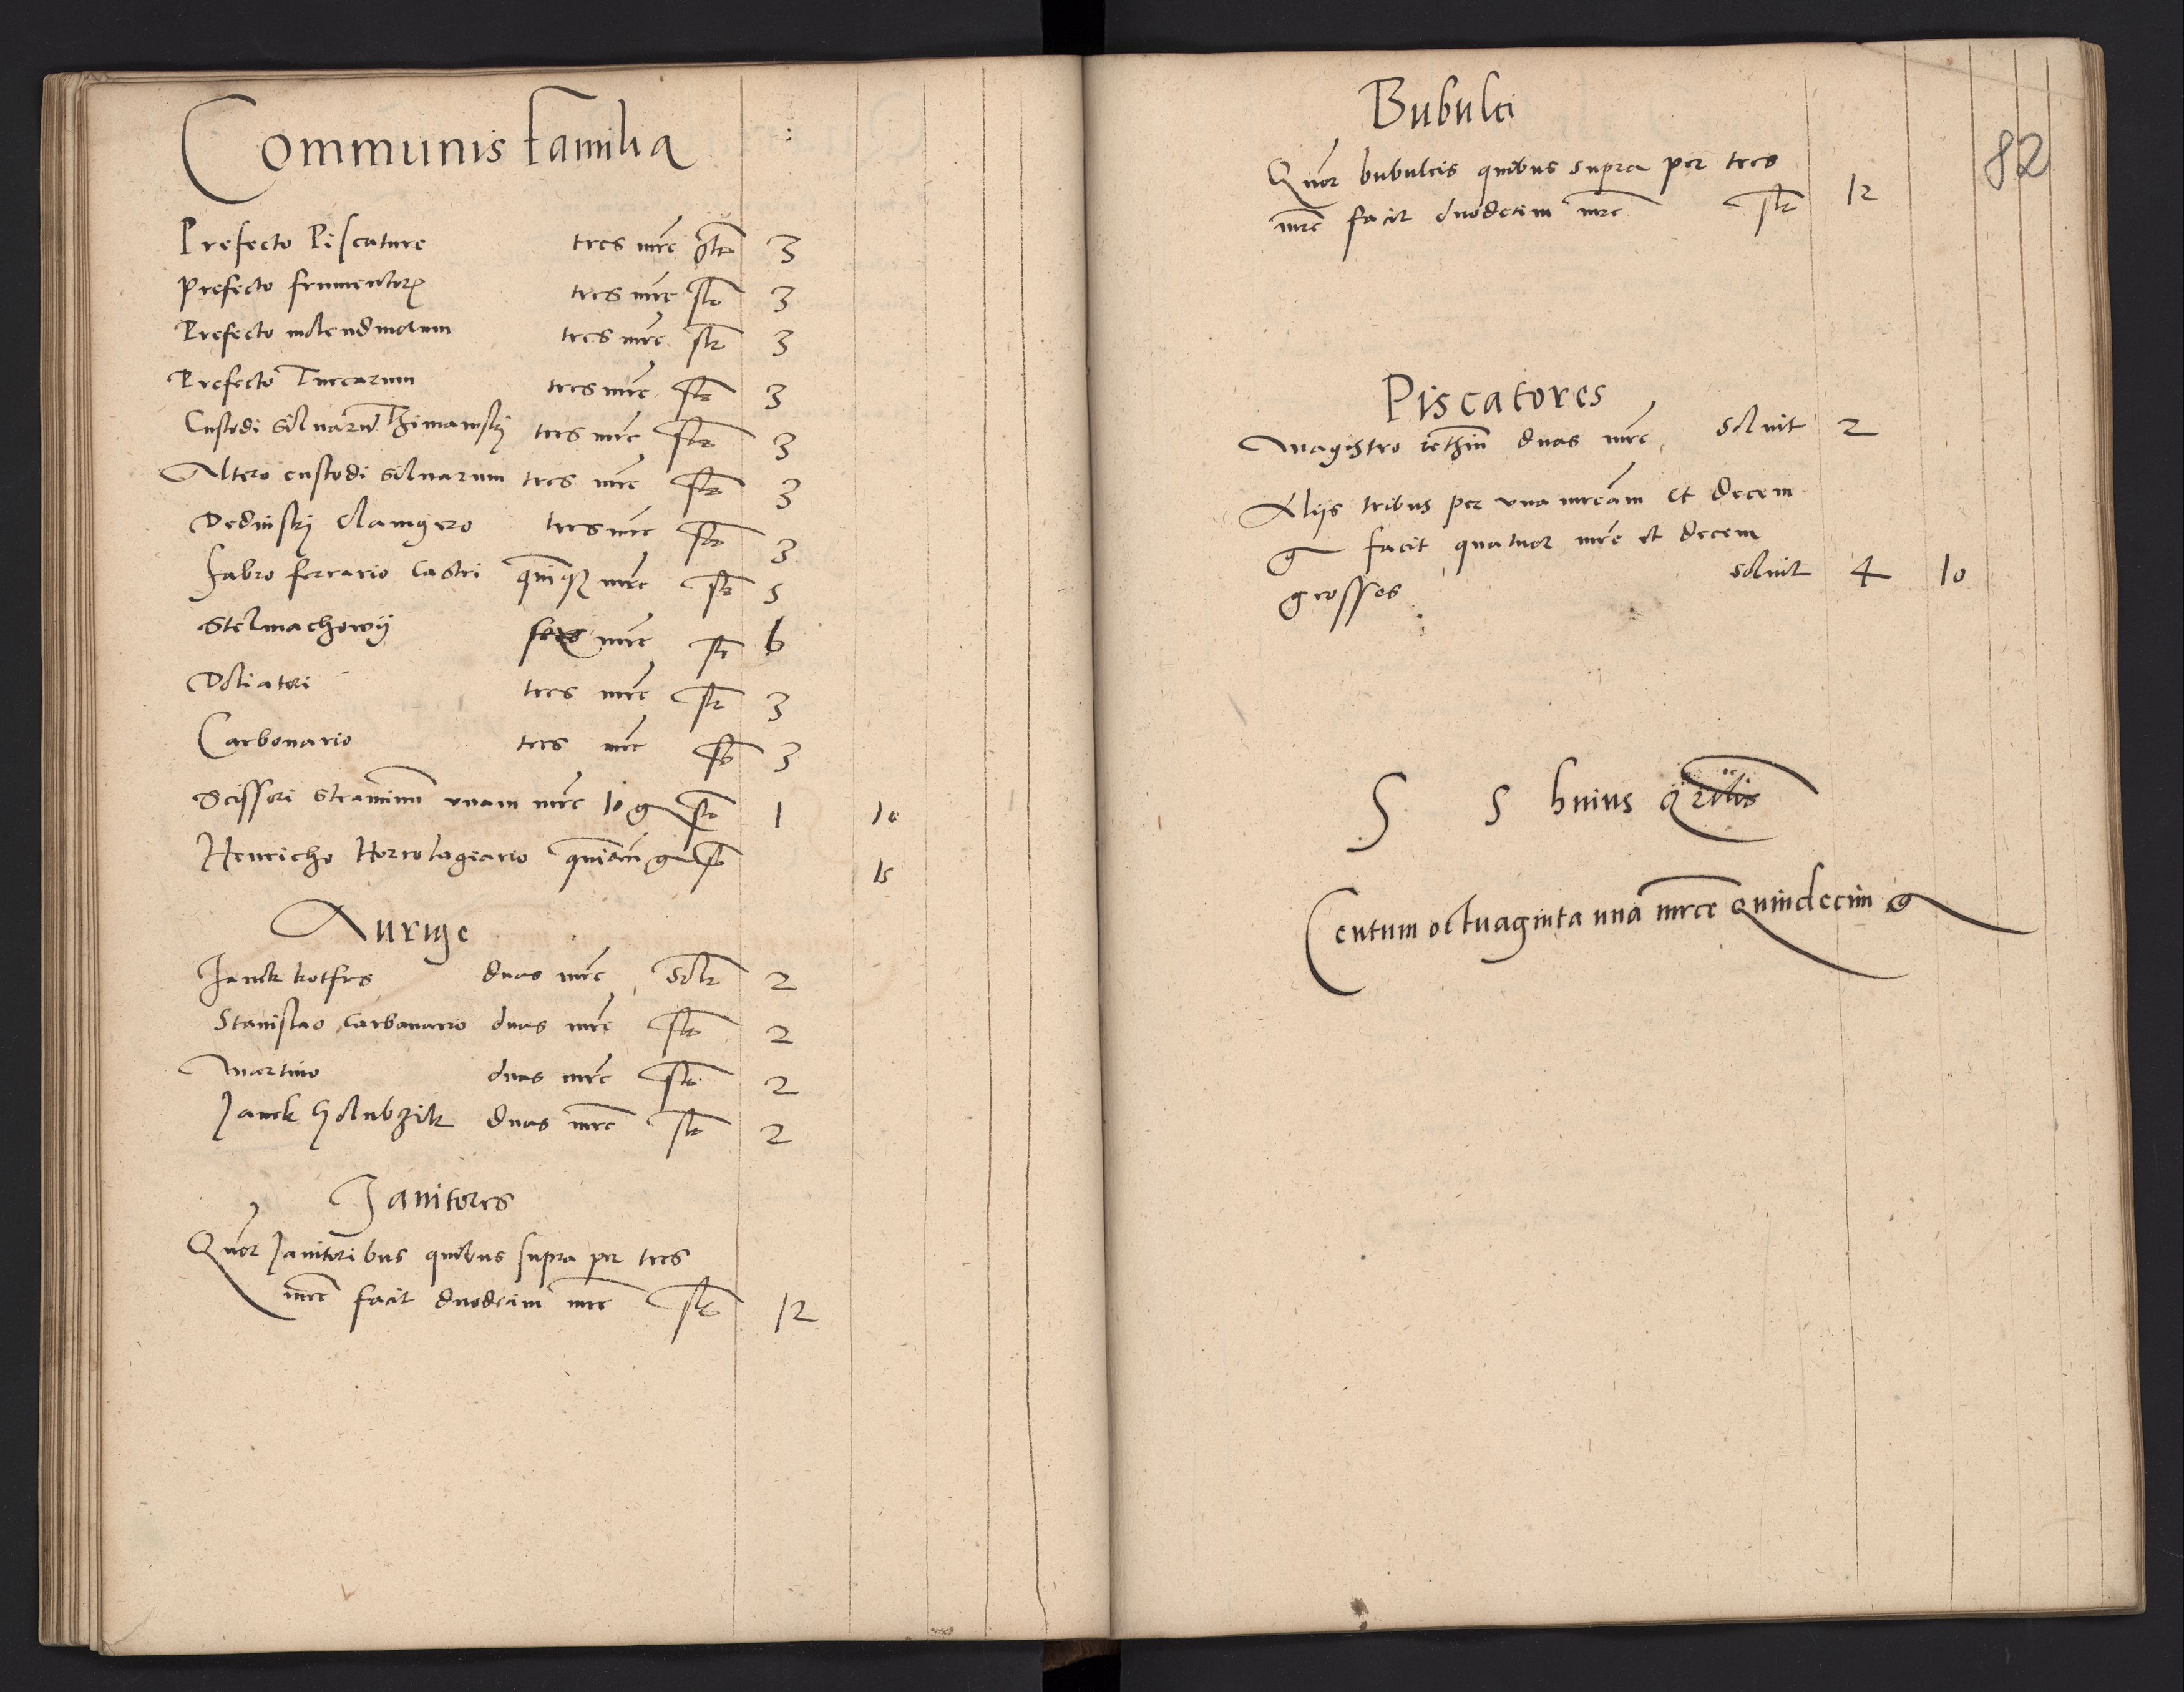 Communis familia
Prefecto Piscature tres mrc slt 3
Prefecto frumentorum tres mrc slt 3
Prefecto molendinorum tres mrc slt 3
Prefecto Turcarum tres mrc slt 3
Custodi silvaru tres mrc slt 3
Altero custodi silvarum tres mrc slt 3
Dedinskj clavigero tres mrc slt 3
Fabro ferrario Castri quinque mrc slt 5
Stelmachowij sex mrc slt 6
Doliatori tres mrc slt 3
Carbonario tres mrc slt 3
Scissori straminum unam mrc 10 g slt 1 10
Henricho Horrolagiario g slt 15
Aurige
Janek kotfrs duas mrc solt 2
Stanislao carbonario duas mrc slt 2
Martino duas mrc slt 2
Janek holubzik duas mrc slt 2
Janitores
Quor Janitoribus quibus supra per tres
mrc facit duodecim mrc slt 12
82
Bubulci
Quor bubulcis quibus supra per tres
mrc facit duodecim mrc slt 12
Piscatores
Magistro duas mrc solvit 2
Alijs tribus per una mrcam et decem
g facit quatuor mrc et decem
grosses solvit 4 10
S S huius
Centum octuaginta una mrce Quindecim g